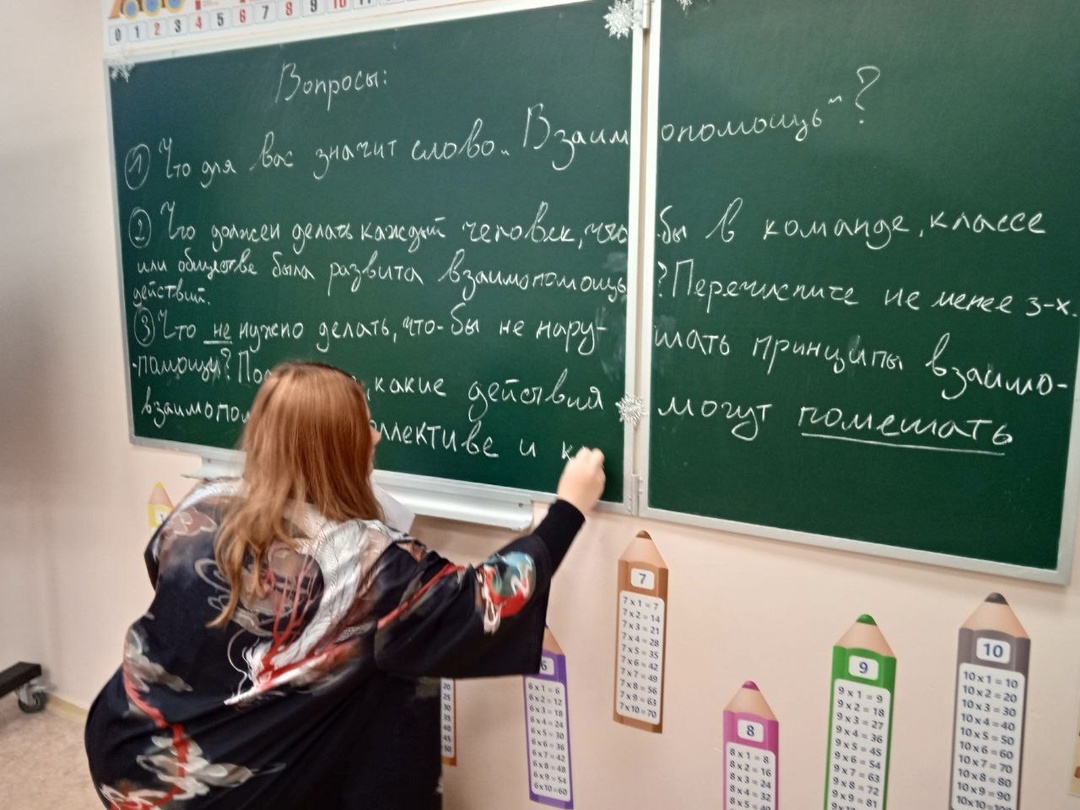 0 1 2 3 4 5 6 7 8 9 10 11
Вопросы:
① Что для вас значит слово „Взаимопомощь"?
② Что должен делать каждый человек, что бы в команде, классе
или обществе была развита взаимопомощь? Перечислите не менее 3-х.
действий.
③ Что не нужно делать, что-бы не нару- шать принципы взаимо-
-помощи? какие действия могут помешать
взаимопом оллективе и к
7
7 x 1 = 7
7 x 2 = 14
7 x 3 = 21
7 x 4 = 28
7 x 5 = 35
7 x 6 = 42
7 x 7 = 49
7 x 8 = 56
7 x 9 = 63
7 x 10 = 70
6
6 x 1 = 6
6 x 2 = 12
6 x 3 = 18
6 x 4 = 24
6 x 5 = 30
6 x 6 = 36
6 x 7 = 42
6 x 8 = 48
6 x 9 = 54
6 x 10 = 60
8
8 x 1 = 8
8 x 2 = 16
8 x 3 = 24
8 x 4 = 32
8 x 5 = 40
9
9 x 1 = 9
9 x 2 = 18
9 x 3 = 27
9 x 4 = 36
9 x 5 = 45
9 x 6 = 54
9 x 7 = 63
9 x 8 = 72
9 x 9 = 81
10
10 x 1 = 10
10 x 2 = 20
10 x 3 = 30
10 x 4 = 40
10 x 5 = 50
10 x 6 = 60
10 x 7 = 70
10 x 8 = 80
10 x 9 = 90